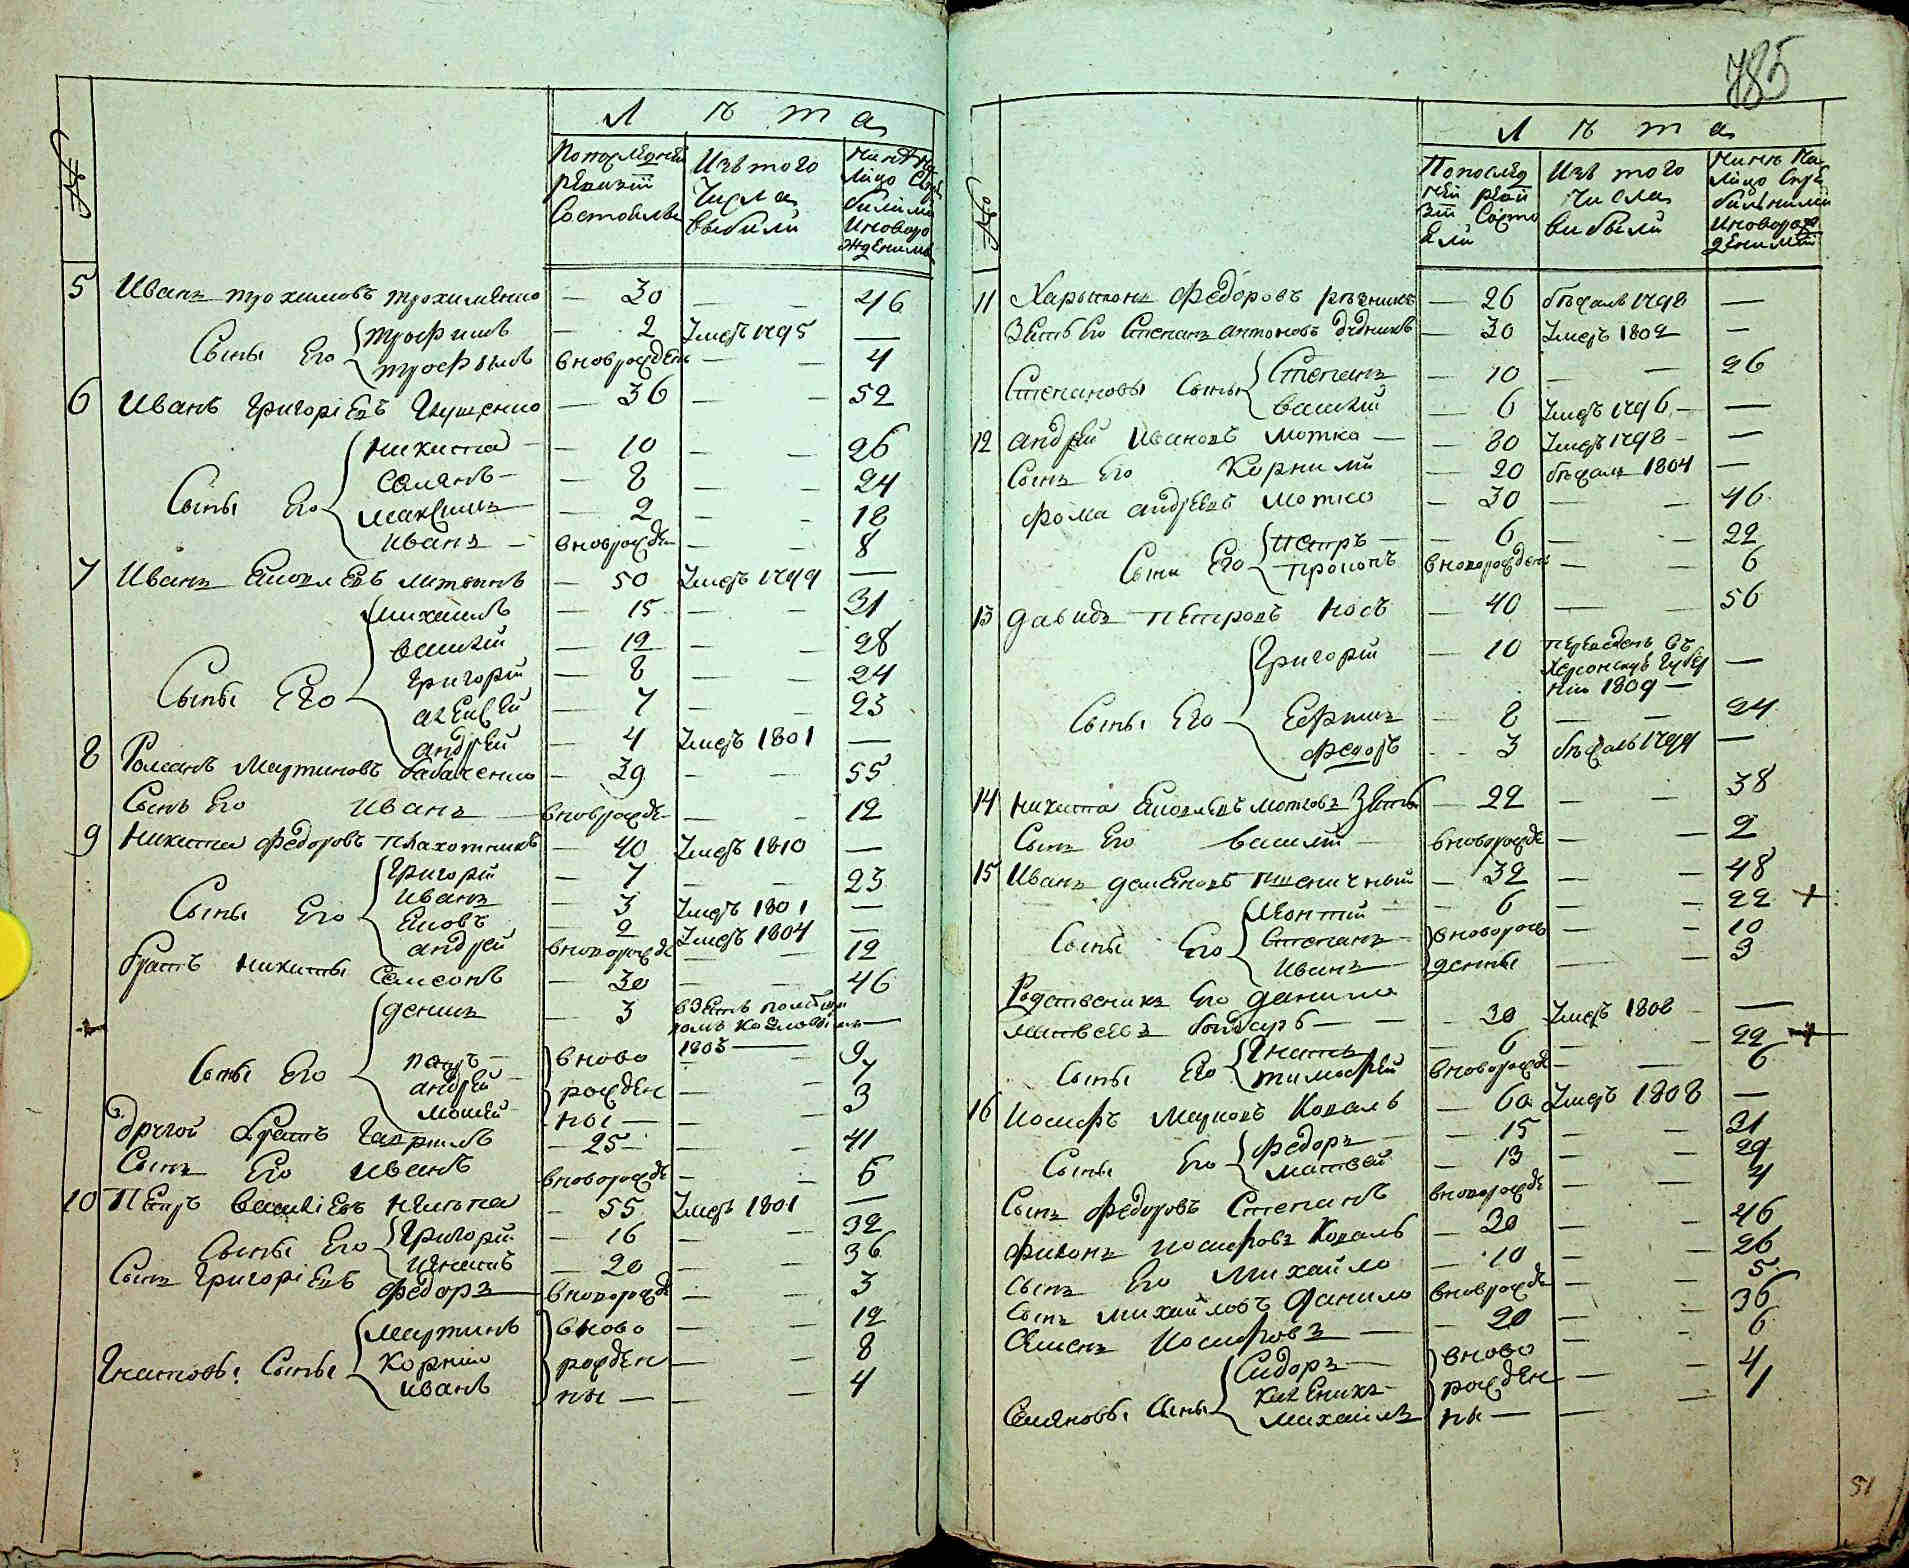 №
Лѣта
По последней
ревизiи
Состояли
Изъ того
Числа
выбыли
Нынѣ на
лицо Съ
новоро
жденными
5 Иванъ трохимовъ трохименко — 30 — — 46
Сыны Его трофимъ — 2 Умеръ 1795 —
трофимъ вновьрожденъ — — 4
6 Иванъ Григорiевъ Глущенко — 36 — — 52
Сыны Его Никита — 10 — — 26
Семенъ — 8 — — 24
Максимъ — 2 — — 18
Иванъ — вноврожде — — 8
7 Иванъ Яковлевъ — 50 Умеръ 1799 —
Сыны Его михаилъ — 15 — — 31
василiй — 12 — — 28
григорiй — 8 — — 24
алексей — 7 — — 23
андрей — 4 Умеръ 1801 —
8 Романъ Мартиновъ бабаченко — 39 — — 55
Сынъ Его Иванъ вноврожде — — 12
9 Никита Федоровъ плахотникъ — 40 Умеръ 1810 —
Сыны Его Григорiй — 7 — — 23
Иванъ — 3 Умеръ 1801 —
Яковъ — 2 Умеръ 1804 —
андрей вноворожде — — 12
братъ никиты Самсонъ — 30 — — 46
Сыны Его денисъ — 3
1803 —
петръ — вново — — 9
андрей — рожден — — 7
мойсей — ны — — — 3
другой братъ Гаврилъ — 25 — — 41
Сынъ Его Иванъ вноворожде — — 6
10 Петръ василiевъ — 55 Умеръ 1801 —
Сыны Его Григорiй — 16 — — 32
Игнатъ — 20 — — 36
Сынъ Григорiевъ Федоръ — вноворожде — — 3
Игнатовы Сыны Мартинъ вново — — 12
Корнiло рожден — — 8
Иванъ ны — — — 4
785
№
Лѣта
По послед
ней реви
зiи Состо
яли
Изъ того
числа
выбыли
Нынѣ на
лицо Съ
новорож
денными
11 Харитонъ Федоровъ резникъ — 26 бежалъ 1798 —
Зять Его Степанъ антоновъ дудникъ — 30 Умеръ 1802 —
Степановы Сыны Степанъ — 10 — — 26
василiй — 6 Умеръ 1796 — —
12 андрей Ивановъ мотко — — 80 Умеръ 1798 — —
Сынъ Его Корнилiй — 20 бежалъ 1804 —
фома андреевъ мотко — 30 — — 46
Сыны Его петръ — — 6 — — 22
прокопъ вноворожденъ — — 6
13 давидъ петровъ носъ — 40 — — 56
Сыны Его Григорiй — 10 переведенъ въ
Херсонскую Губер
нiю 1809 — —
Ефимъ — 8 — — 24
федоръ — 3 бежалъ 1799 —
14 никита Яковлевъ мотковъ Зять — 22 — — 38
Сынъ Его василiй — вноворожде — — 2
15 Иванъ деменовъ пшеничный — 32 — — 48
Сыны Его Леонтiй — — 6 — — 22 +
Степанъ — вноворож — — 10
Иванъ — денны — — 3
Родственикъ Его данило
матвеевъ бондарь — — 30 Умеръ 1808 —
Сыны Его Игнатъ — 6 — — 22 +
тимофей вноворожде — — 6
16 Иосифъ Марковъ Коваль — 60 Умеръ 1808 —
Сыны Его Федоръ — — 15 — — 31
матвей — 13 — — 29
Сынъ Федоровъ Степанъ вноворожде — — 4
Иосифовъ Коваль — 30 — — 46
Сынъ Его Михайло — 10 — — 26
Сынъ михайловъ данило вноврожде — — 5
Семенъ Иосифовъ — — 20 — — 36
Семеновы Сыны Сидоръ — вново — — 6
рожден — — 4
михаилъ ны — — — 1
51